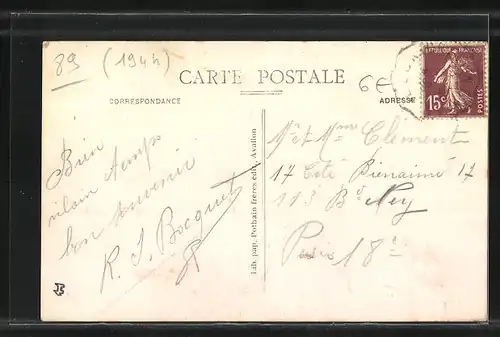 89 (1944)
CARTE POSTALE
6€
CORRESPONDANCE
ADRESSE
REPUBLIQUE FRANÇAISE
15c
POSTES
Bien
vilain temps
bon souvenir
R. J. Bocquet
Lib. pap. Pothain frères édit. Avallon
Mr et Mme Clément
17 Cité Bienaimé 17
113 Bd Ney
Paris 18e